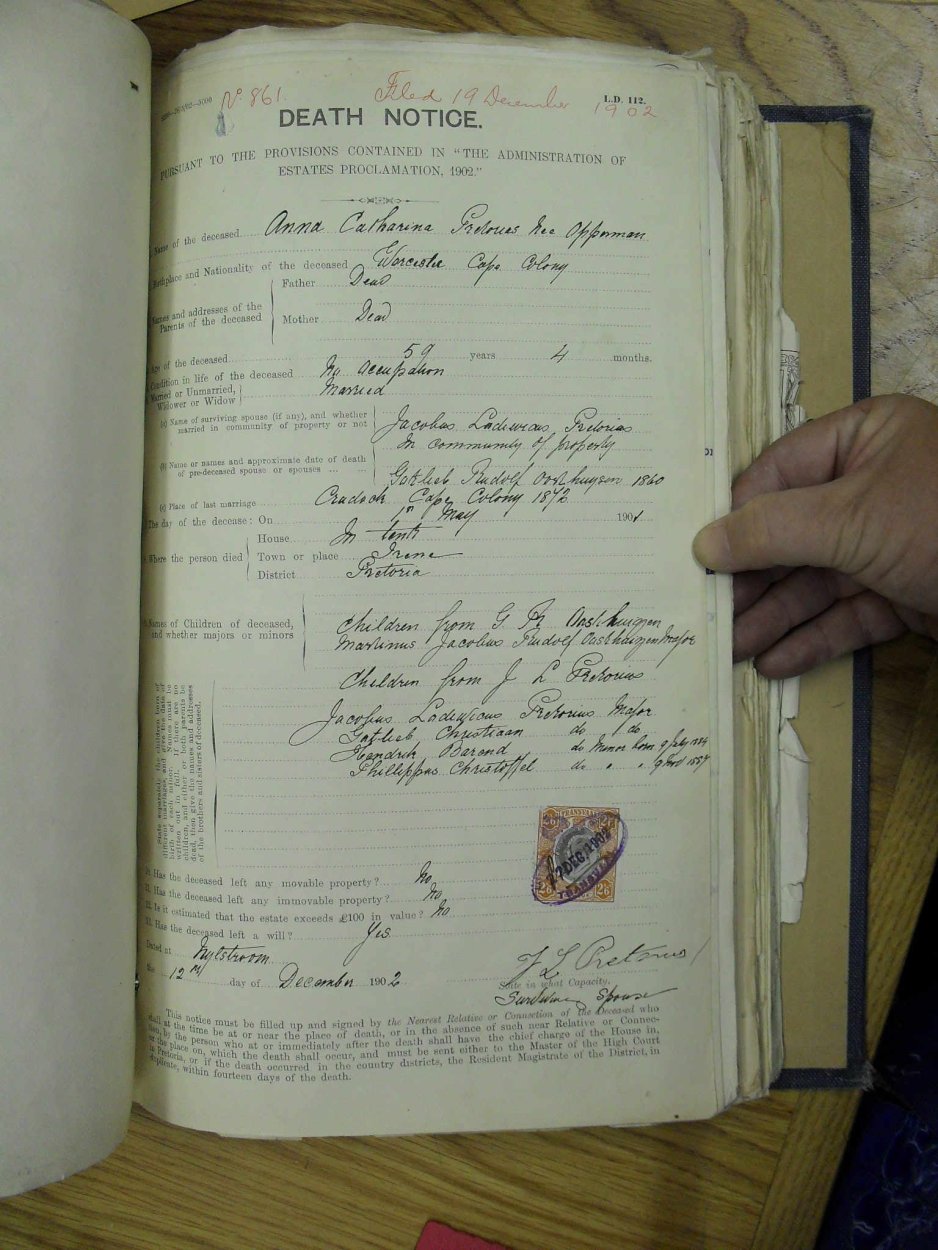 No. 861. Filed 19 December 1902 L.D. 112.
DEATH NOTICE.
PURSUANT TO THE PROVISIONS CONTAINED IN "THE ADMINISTRATION OF
ESTATES PROCLAMATION, 1902."
Name of the deceased Anna Catharina Pretorius Nee Opperman
Birthplace and Nationality of the deceased Worcester Cape Colony
Names and addresses of the Parents of the deceased
Father Dead
Mother Dead
Age of the deceased 59 years 4 months.
Condition in life of the deceased No Occupation
Married or Unmarried, Widower or Widow Married
(a) Name of surviving spouse (if any), and whether married in community of property or not
Jacobus Lodewicus Pretorius
In community of property
(b) Name or names and approximate date of death of pre-deceased spouse or spouses
Gotlieb Rudolf Oosthuysen 1860
(c) Place of last marriage Cradock Cape Colony 1872
The day of the decease: On 1st May 1901
Where the person died
House In tents
Town or place Irene
District Pretoria
Names of Children of deceased, and whether majors or minors
Children from G. R. Oosthuizen
Martinus Jacobus Rudolf Oosthuizen Major
Children from J L Pretorius
Jacobus Lodewicus Pretorius Major
Gotlieb Christiaan do do
Hendrik Barend do Minor born 9 July 1884
Phillippus Christoffel do " " 9 Nov 1887
State separately the children born of
different marriages, and give the date of
birth of each minor. Names must be
written out in full. If there are no
children, and either or both parents be
dead, then give the names and addresses
of the brothers and sisters of deceased.
10. Has the deceased left any movable property? No
11. Has the deceased left any immovable property? No
12. Is it estimated that the estate exceeds £100 in value? No
13. Has the deceased left a will? Yes
TRANSVAAL
DEC. 1902
TRANSVAAL
2/6 2/6
Dated at Nylstroom
the 12th day of December 1902
J L Pretorius
State in what Capacity.
Surviving Spouse
This notice must be filled up and signed by the Nearest Relative or Connection of the Deceased who
shall at the time be at or near the place of death, or in the absence of such near Relative or Connec-
tion, by the person who at or immediately after the death shall have the chief charge of the House in,
or the place on, which the death shall occur, and must be sent either to the Master of the High Court
in Pretoria, or if the death occurred in the country districts, the Resident Magistrate of the District, in
duplicate, within fourteen days of the death.